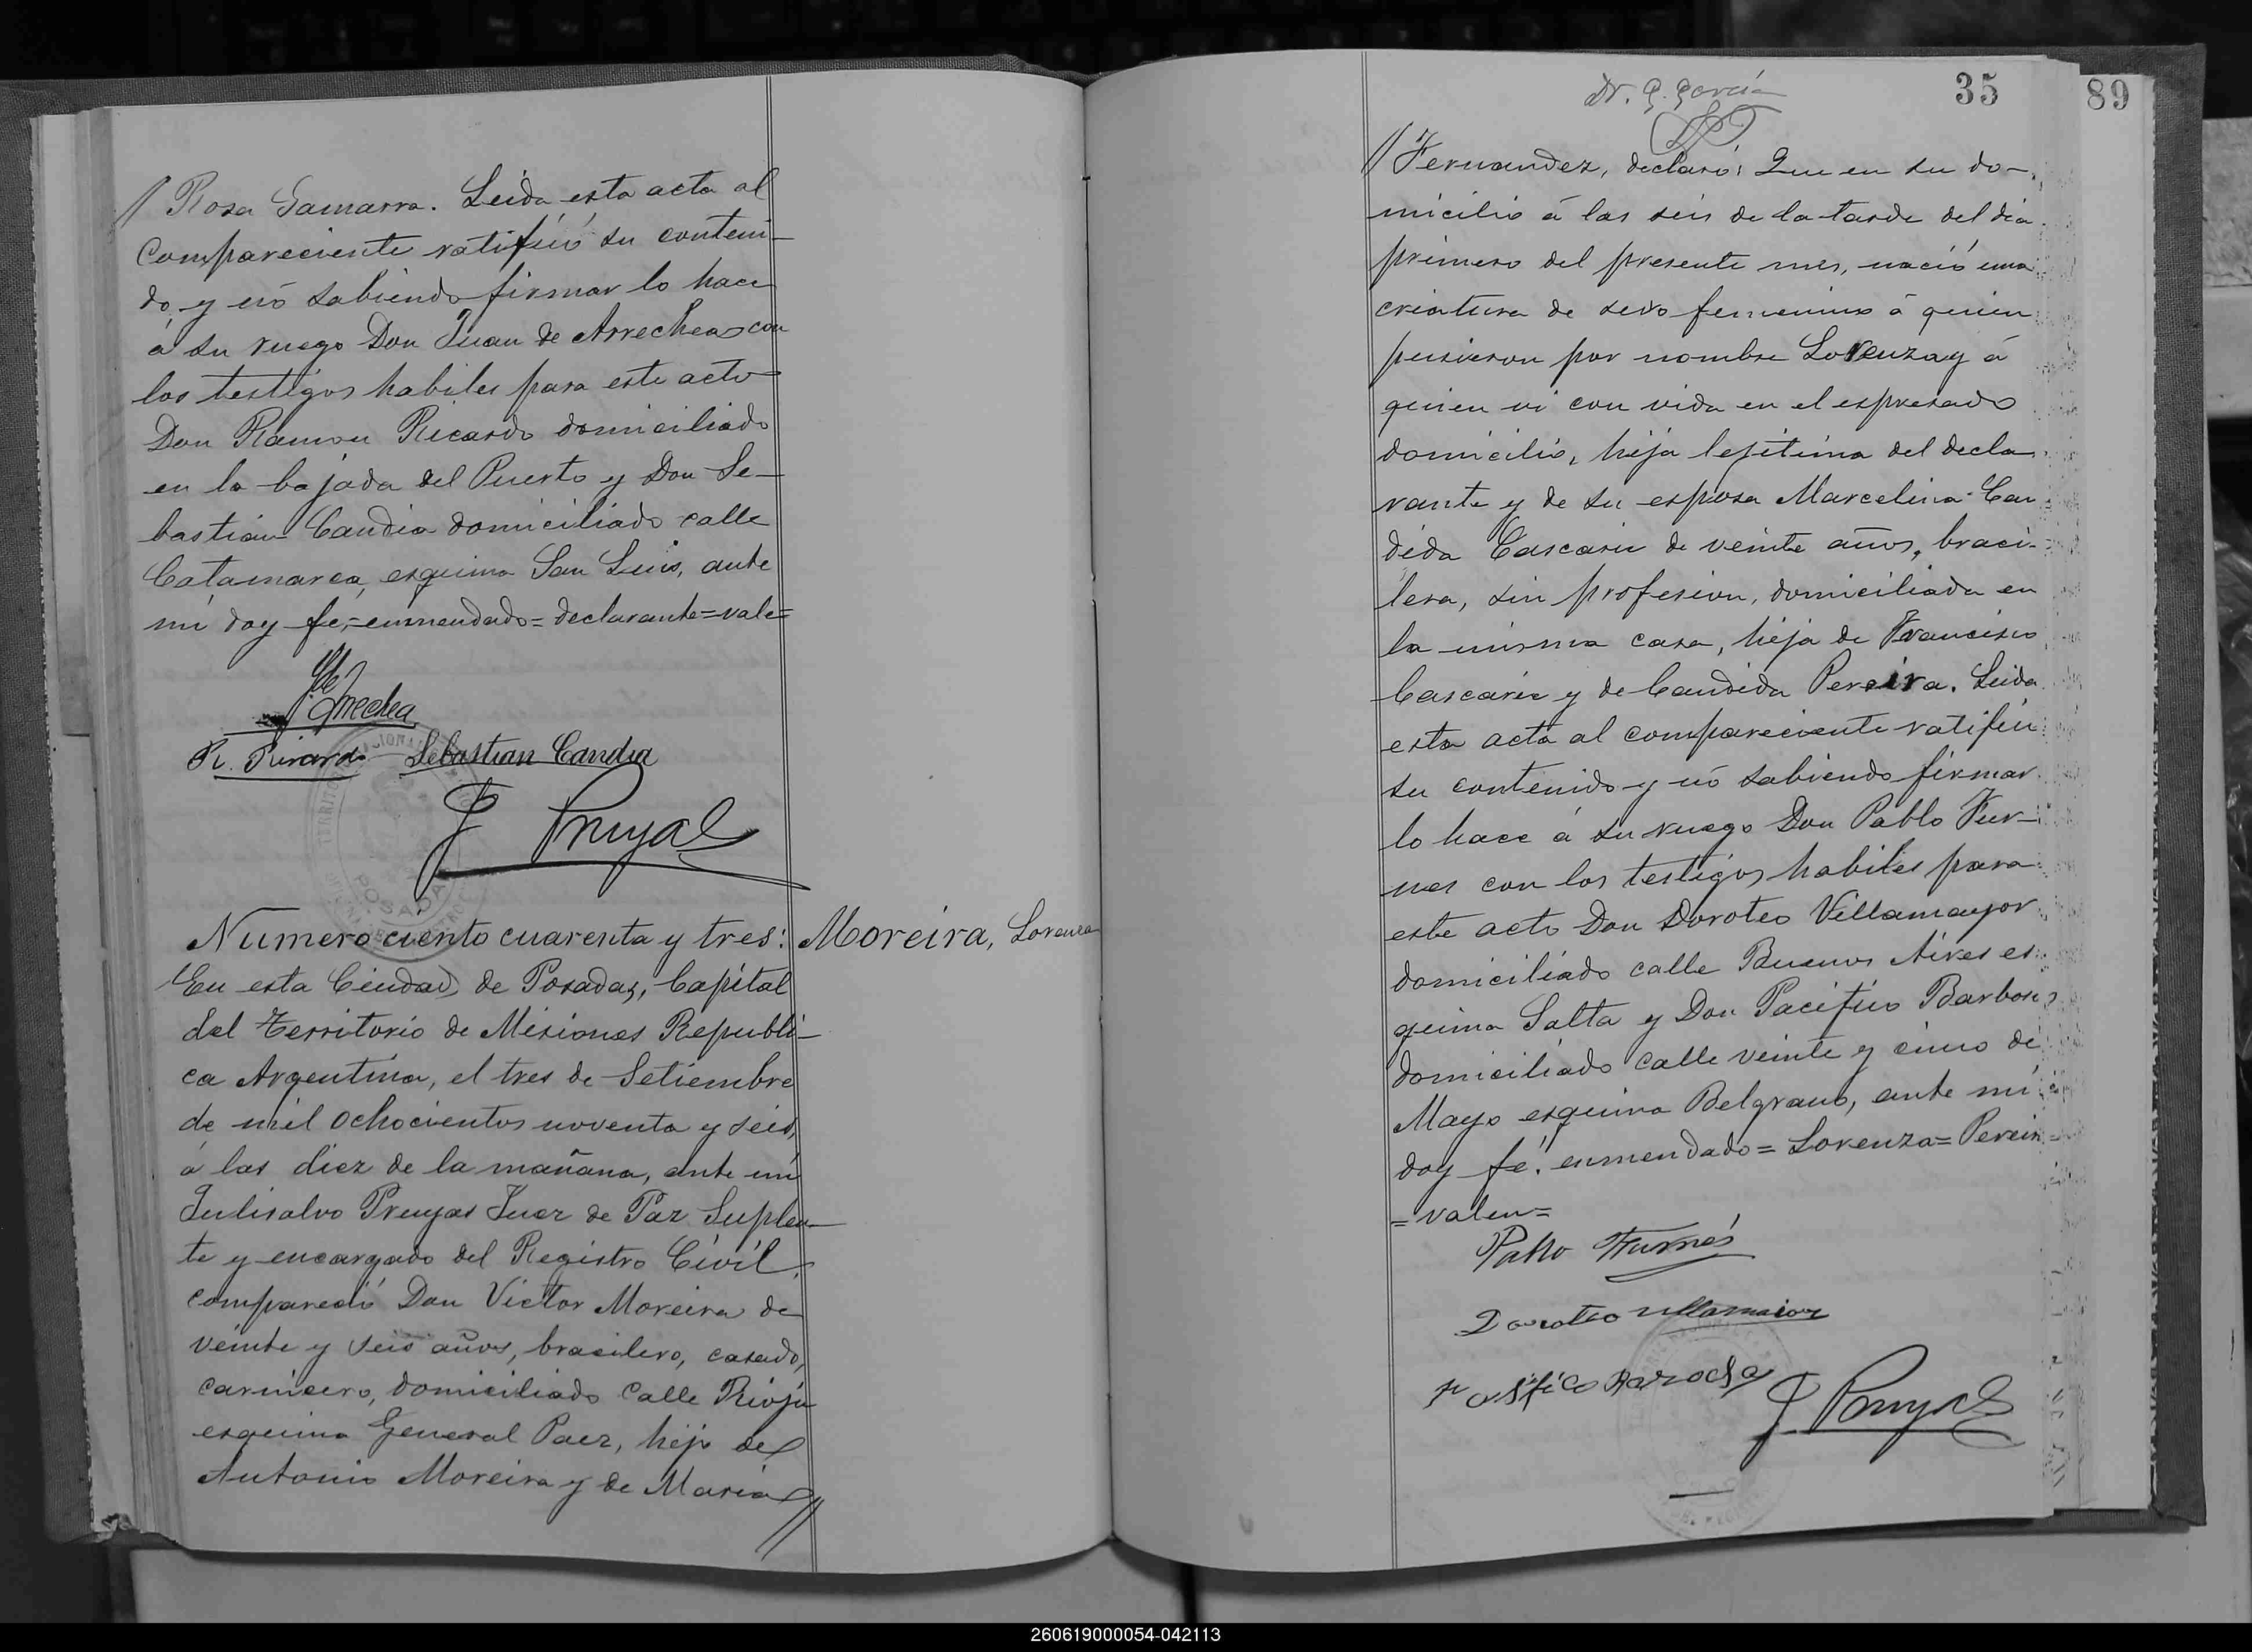 // Rosa Gamarra. Leida esta acta al
compareciente ratificó su conteni-
do, y nó sabiendo firmar lo hace
á su ruego Don Juan de Arrechea con
los testigos habiles para este acto
Don Ramon Ricardo domiciliado
en la bajada del Puerto y Don Se-
bastian Candia domiciliado calle
Catamarca, esquina San Luis, ante
mi doy fe,=enmendado=declarante=vale=
J. de Arrechea
R. Ricardo Sebastian Candia
J. Pruyas
POSADAS
Numero ciento cuarenta y tres: Moreira, Lorenza
En esta Ciudad de Posadas, Capital
del Territorio de Misiones Republi-
ca Argentina, el tres de Setiembre
de mil ochocientos noventa y seis,
á las diez de la mañana, ante mi
Julisalvo Pruyas Juez de Paz Suplen-
te y encargado del Registro Civil,
compareció Don Victor Moreira de
veinte y seis años, brasilero, casado,
carnicero, domiciliado Calle Rioja
esquina General Paez, hijo de
Antonio Moreira y de Maria //
Dr. G. García
35
89
// Fernandez, declaró: Que en su do-
micilio á las seis de la tarde del dia
primero del presente mes, nació una
criatura de sexo femenino á quien
pusieron por nombre Lorenza y á
quien vi con vida en el espresado
domicilio, hija lejitima del decla-
rante y de su esposa Marcelina Can-
dida Cascarie de veinte años, brasi-
lera, sin profesion, domiciliada en
la misma casa, hija de Francisco
Cascarie y de Candida Pereira. Leida
esta acta al compareciente ratificó
su contenido y nó sabiendo firmar
lo hace á su ruego Don Pablo Fur-
nes con los testigos habiles para
este acto Don Doroteo Villamayor
domiciliado calle Buenos Aires es-
quina Salta y Don Pacifico Barbosa
domiciliado calle veinte y cinco de
Mayo esquina Belgrano, ante mi
doy fé. enmendado=Lorenza=Pereira
=valen=
Pablo Furnés
Doroteo Villamaior
Pasifico Barbosa J. Pruyas
260619000054-042113